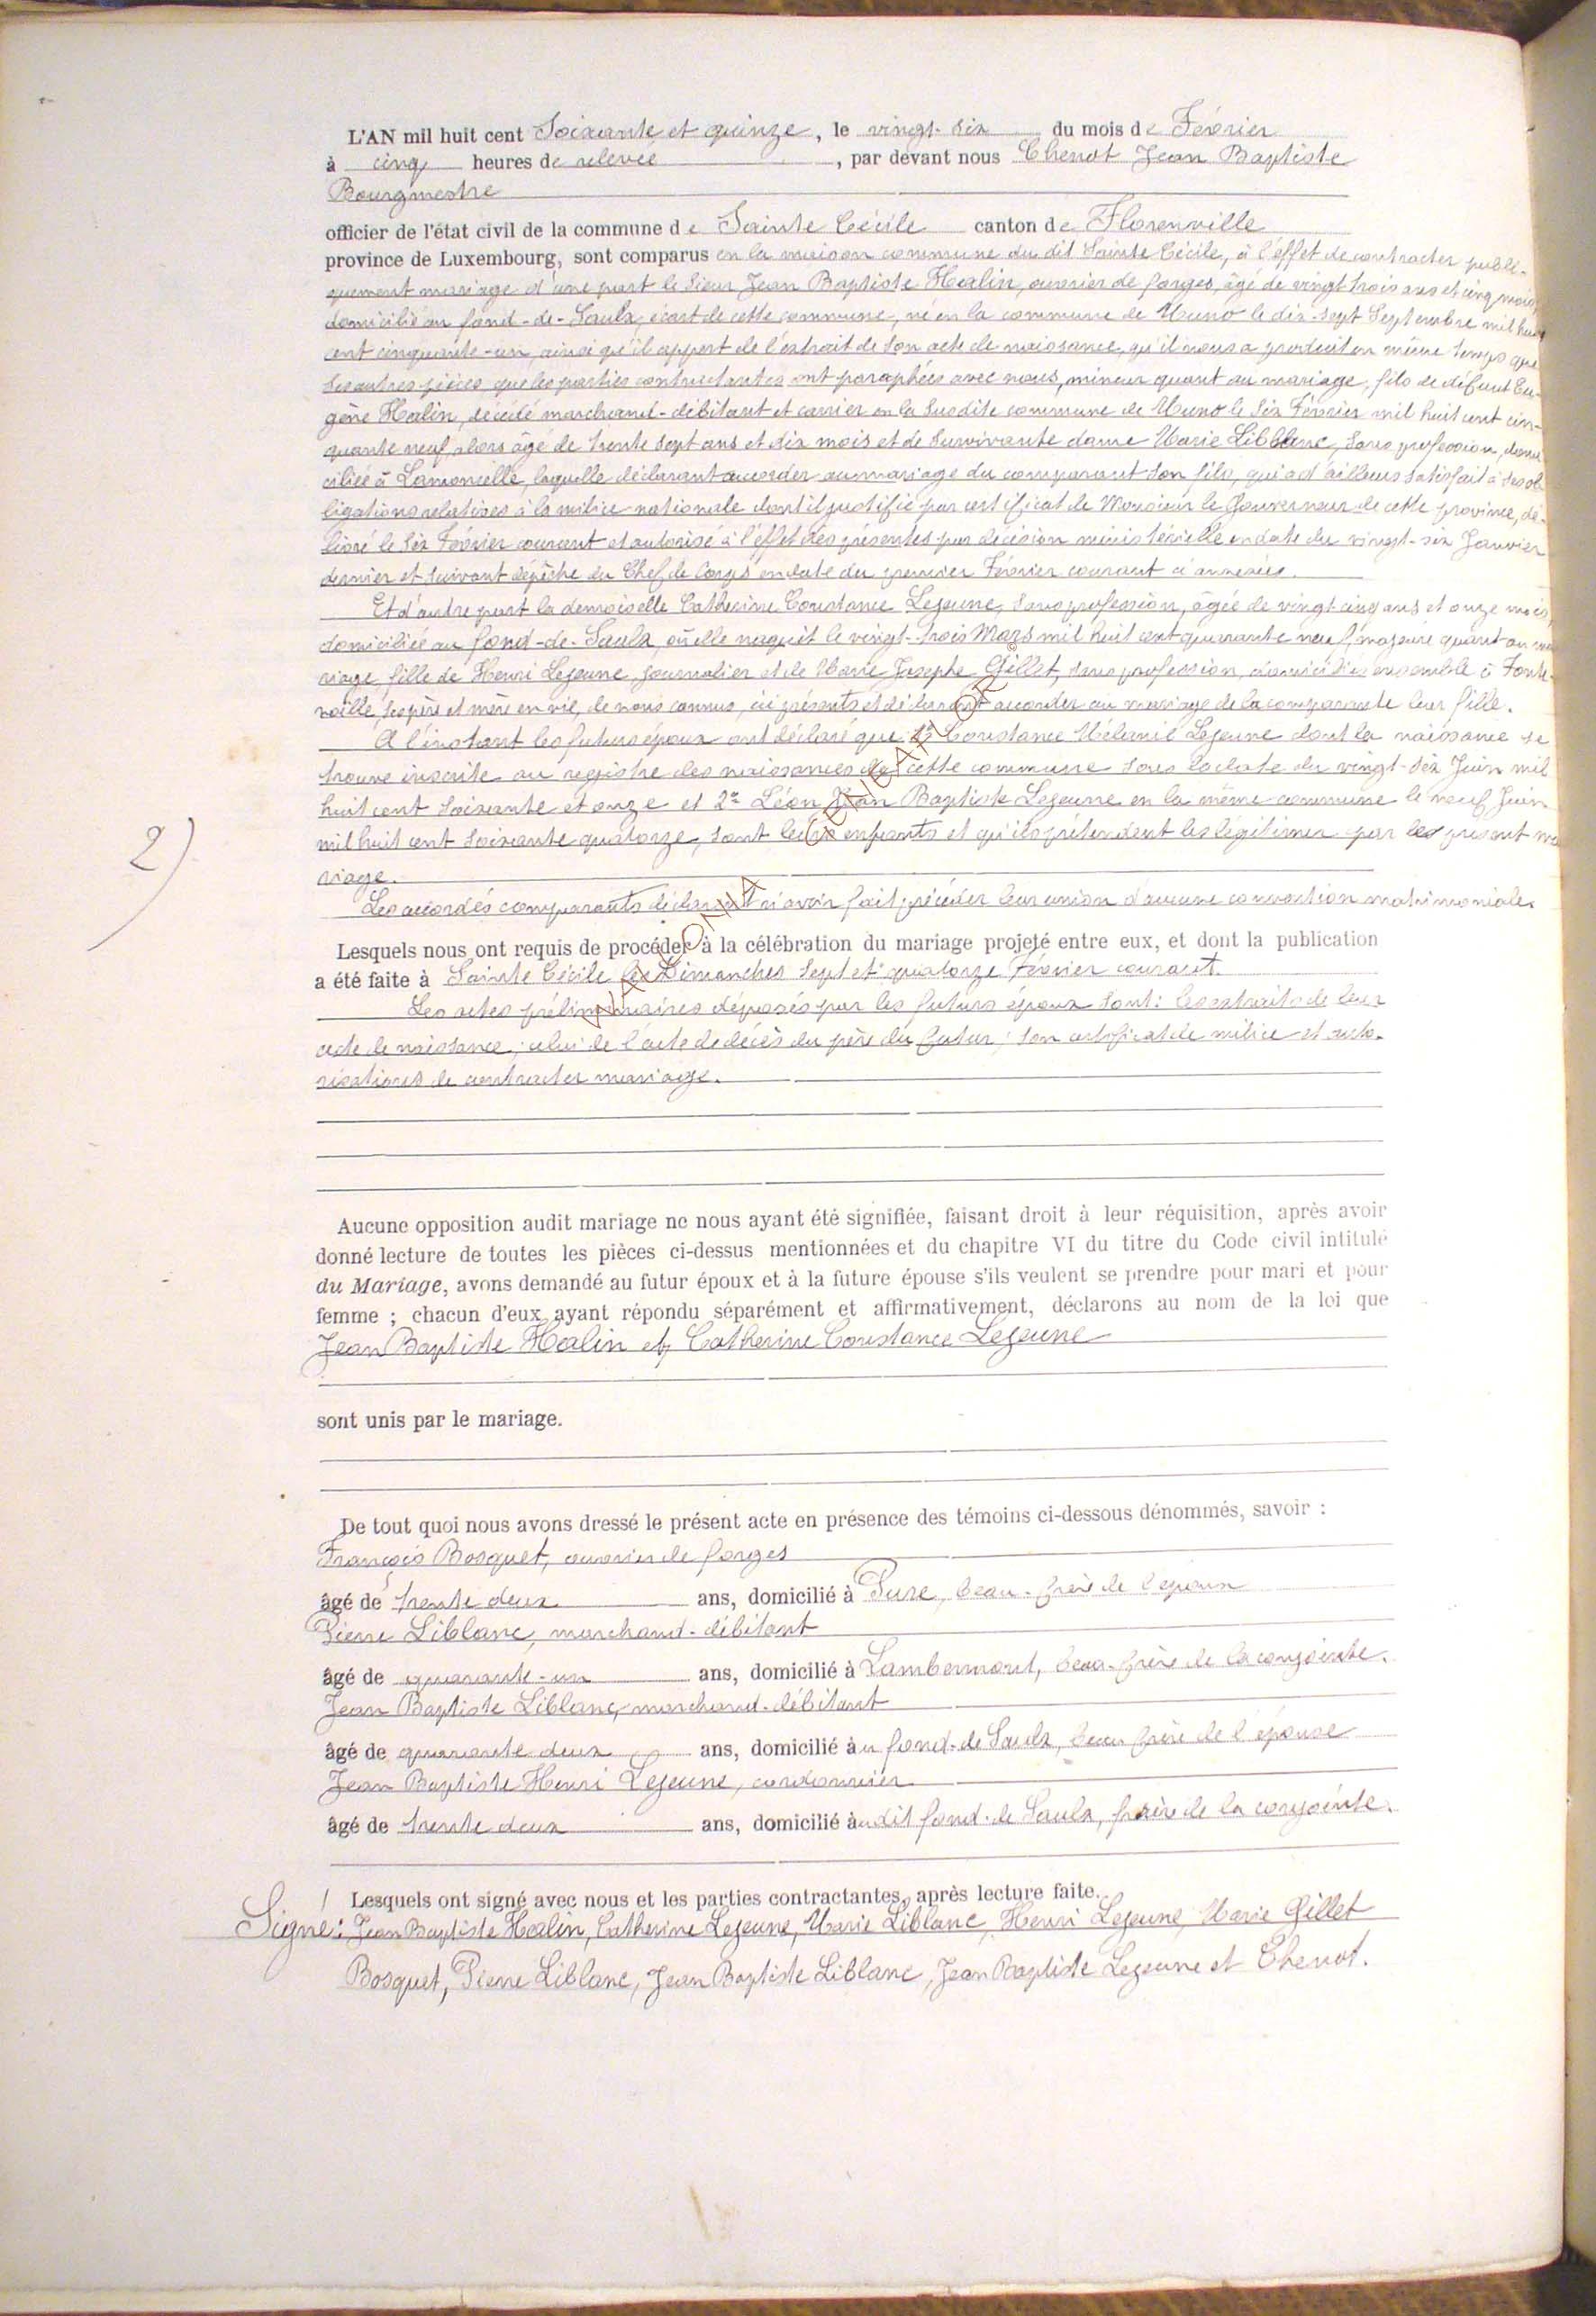 L'AN mil huit cent Soixante et quinze, le vingt-six du mois de Février
à cinq heures de relevée, par devant nous Chenot Jean Baptiste
Bourgmestre
officier de l'état civil de la commune de Sainte Cécile canton de Florenville
province de Luxembourg, sont comparus en la maison commune du dit Sainte Cécile, à l'effet de contracter publi-
quement mariage d'une part le Sieur Jean Baptiste Halin, ouvrier de forges, âgé de vingt trois ans et cinq mois,
domicilié au fond-de-Saulx, écart de cette commune, né en la commune de Muno le dix-sept Septembre mil huit
cent cinquante-un, ainsi qu'il appert de l'extrait de son acte de naissance, qu'il nous a produit en même temps que
les autres pièces que les parties contractantes ont paraphées avec nous, mineur quant au mariage, fils de défunt Eu-
gène Halin, décédé marchand-débitant et carrier en la susdite commune de Muno le six Février mil huit cent cin-
quante neuf, alors âgé de trente sept ans et dix mois et de survivante dame Marie Liblanc, sans profession, domi-
ciliée à Lamoncelle, laquelle déclarant accorder au mariage du comparant son fils, qui a d'ailleurs satisfait à ses ob-
ligations relatives à la milice nationale dont il justifie par certificat de Monsieur le Gouverneur de cette province, dé-
livré le six Février courant et autorisé à l'effet des présentes par décision ministérielle en date du vingt-six Janvier
dernier et suivant dépêche du Chef de Corps en date du premier Février courant ci annexées.
Et d'autre part la demoiselle Catherine Constance Lejeune, sans profession, âgée de vingt cinq ans et onze mois,
domiciliée au fond-de-Saulx, où elle naquit le vingt-trois Mars mil huit cent quarante neuf, majeure quant au ma
riage, fille de Henri Lejeune, journalier et de Marie Josephe Gillet, sans profession, domiciliés ensemble à Fonte-
noille, ses père et mère en vie, de nous connus, ici présents et déclarant accorder au mariage de la comparante leur fille.
A l'instant les futurs époux ont déclaré que 1° Constance Mélanie Lejeune dont la naissance se
trouve inscrite au registre des naissances de cette commune sous la date du vingt-six Juin mil
huit cent soixante et onze et 2° Léon Jean Baptiste Lejeune en la même commune le neuf Juin
mil huit cent soixante quatorze, sont leurs enfants et qu'ils prétendent les légitimer par le présent ma
riage.
2)
Les accordés comparants déclarent n'avoir fait précéder leur union d'aucune convention matrimoniale.
Lesquels nous ont requis de procéder à la célébration du mariage projeté entre eux, et dont la publication
a été faite à Sainte Cécile les Dimanches Sept et quatorze Février courant.
Les actes préliminaires déposés par les futurs époux sont: les extraits de leur
acte de naissance; celui de l'acte de décès du père du futur; son certificat de milice et auto-
risations de contracter mariage.
Aucune opposition audit mariage ne nous ayant été signifiée, faisant droit à leur réquisition, après avoir
donné lecture de toutes les pièces ci-dessus mentionnées et du chapitre VI du titre du Code civil intitulé
du Mariage, avons demandé au futur époux et à la future épouse s'ils veulent se prendre pour mari et pour
femme ; chacun d'eux ayant répondu séparément et affirmativement, déclarons au nom de la loi que
Jean Baptiste Halin et Catherine Constance Lejeune
sont unis par le mariage.
De tout quoi nous avons dressé le présent acte en présence des témoins ci-dessous dénommés, savoir :
François Bosquet, ouvrier de forges
âgé de trente deux ans, domicilié à Pure, beau-frère de l'époux
Pierre Liblanc, marchand-débitant
âgé de quarante-un ans, domicilié à Lambermont, beau-frère de la conjointe.
Jean Baptiste Liblanc, marchand-débitant
âgé de quarante deux ans, domicilié au fond-de Saulx, beau frère de l'épouse
Jean Baptiste Henri Lejeune, cordonnier
âgé de trente deux ans, domicilié audit fond-de Saulx, frère de la conjointe.
Lesquels ont signé avec nous et les parties contractantes, après lecture faite.
Signé: Jean Baptiste Halin, Catherine Lejeune, Marie Liblanc, Henri Lejeune, Marie Gillet
Bosquet, Pierre Liblanc, Jean Baptiste Liblanc, Jean Baptiste Lejeune et Chenot.